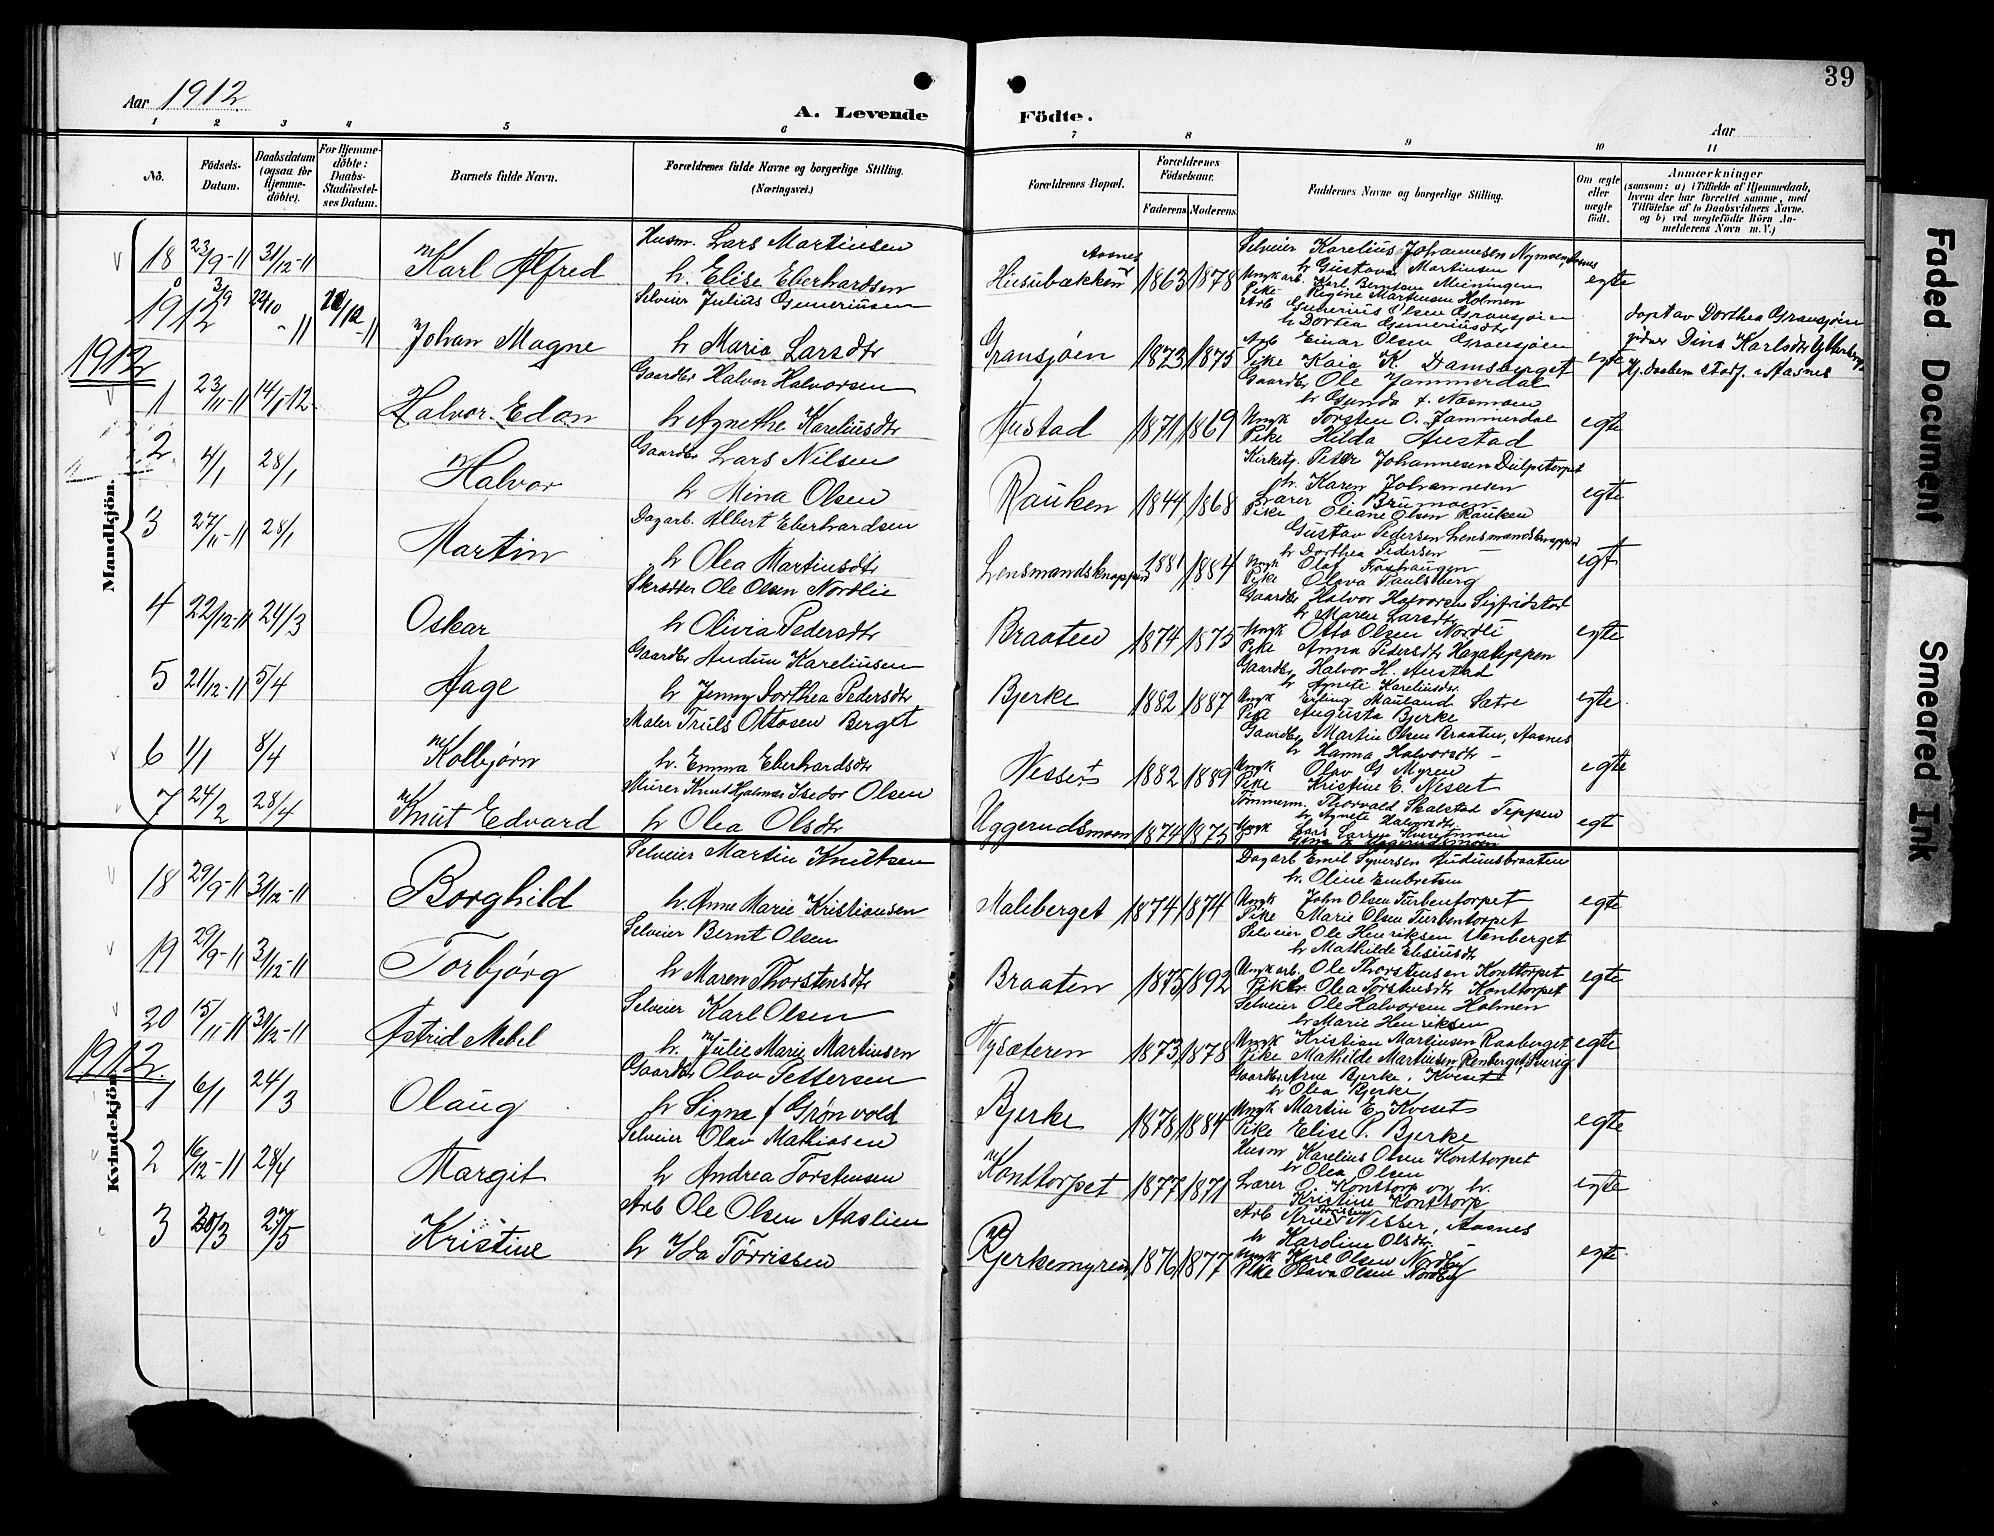 39
Aar 1912
A. Levende Födte.
Aar
1 2 3 4 5 6 7 8 9 10 11
No.
Födsels-Datum.
Daabsdatum (ogsaa for Hjemmedöbte).
For Hjemmedöbte: Daabs-Stadfæstelses Datum.
Barnets fulde Navn.
Forældrenes fulde Navne og borgerlige Stilling. (Næringsvei.)
Forældrenes Bopæl.
Forældrenes Födselsaar.
Faderens Moderens
Faddernes Navne og borgerlige Stilling.
Om ægte eller uægte födt.
Anmærkninger (saasom: a) i Tilfælde af Hjemmedaab, hvem der har forrettet samme, med Tilföielse af to Daabsvidners Navne, og b) ved uægtefödte Börn Anmelderens Navn m. V.)
Mandkjön.
18 23/9-11 31/12-11 Karl Alfred
Husm. Lars Martinsen
h. Elise Eberhardsen
Husubakken Aasnes 1863 1878
Selveier Karelius Johannesen Nymoen, Aasnes
h Gustava Martinsen
Ungkarl. Karl Berntsen Meiningen
Pike Regine Martinsen Holmen
egte
19 3/9 22/10-11 Johan Magne
Selveier Julius Guneriusen
h Maria Larsdtr
Gransjøen 1873 1875
Arb Gunerius Olsen Gransjøen
h Dortea Gunneriusdtr
Arb Einar Olsen Gransjøen
Pike Kaia K. Damsberget
egte
døpt av Dorthea Gransjøen
Dina Karlsdtr
Hj. daaben stadf. i Aasnes
1912
1 23/11-11 14/1-12 Halvor Edon
Gaardbr Halvor Halvorsen
h Agnethe Kareliusdtr
Austad 1871 1869
Gaardbr Ole Jammerdal
h Gunda f. Næsmoen
Ungk Torsten O. Jammerdal
Pike Hilda Austad
egte
2 4/1 28/1 Halvor
Gaardbr Lars Nilsen
h Mina Olsen
Rauken 1844 1868
Kirketj. Peter Johannesen Dulpetorpet
h. Karen Johannesen
Lærer O. Brumoen
Pike Oliane Olsen Rauken
egte
3 27/11-11 28/1 Martin
Dagarb. Albert Eberhardsen
h Olea Martinsdtr
Lensmandsknappen 1881 1884
Gustav Pedersen Lensmandsknappen
h Dorthea Pedersen
Ungk Olaf Foshaugen
Pike Olava Paulsberg
egt
4 22/12-11 24/3 Oskar
Skrædder Ole Olsen Nordlie
h Olivia Pedersdtr
Braaten 1874 1875
Gaardbr Halvor Halvorsen Sigfridstad
h Maren Larsdtr
Ungk Otto Olsen Nordli
Pike Anna Pedersdtr Hagateppen
egte
5 21/12-11 5/4 Aage
Gaardbr Audun Kareliusen
h Jenny Dorthea Pedersdtr
Bjerke 1882 1887
Gaardbr Halvor H. Austad
h Agnete Kareliusdtr
Ungk Erling Mauland Satre
Pike Augusta Bjerke
egte
6 1/1 8/4 Kolbjørn
Maler Truls Ottosen Berget
h. Emma Eberhardsdtr
Nesset 1882 1889
Gaardbr Martin Olsen Braaten, Aasnes
h Hanna Halvorsdtr
Ungk Olav G Myren
Pike Kristine E. Nesset
egte
7 24/2 28/4 Knut Edvard
Murer Knut Hjalmar Isedor Olsen
h Olea Olsdtr
Uggerudsmoen 1874 1875
Tømmerm. Thorvald Skalstad Teppen
h Agnete Halvorsdtr
Ungk Lars Larsen Kvesetmoen
egt
Kvindekjön.
18 29/9-11 31/12-11 Borghild
Selveier Martin Knutsen
h. Anne Marie Kristiansen
Maliberget 1874 1874
Dagarb Emil Syversen Audunsbraaten
h. Oline Embretsen
Ungk John Olsen Turbentorpet
Pike Marie Olsen Turbentorpet
egte
19 29/9-11 31/12-11 Torbjørg
Selveier Bernt Olsen
h Maren Thorstensdtr
Braaten 1875 1892
Selveier Ole Henriksen Venberget
h Mathilde Elisiusdtr
Ungkarl. Ole Thorstensen Konttorpet
Pike Olea Torstensdtr Konttorpet
egte
20 15/11-11 31/12-11 Astrid Mebel
Selveier Karl Olsen
h. Julie Marie Martinsen
Nysæteren 1873 1878
Selveier Ole Halvorsen Holmen
h Marie Henriksen
Ungk Kristian Martinsen Raaberget
Pike Mathilde Martinsen Renberget, Sverig
egte
1912
1 6/1 24/3 Olaug
Gaardbr Olav Pettersen
h Signe f Grønvold
Bjerke 1878 1884
Gaardbr Arne Bjerke, Kveset
h Olea Bjerke
Ungk Martin E. Kveset
Pike Elise P. Bjerke
egte
2 16/12-11 28/4 Margit
Selveier Olav Mathiasen
h Andrea Torstensen
Konttorpet 1877 1871
Husm Karelius Olsen Konttorpet
h Olea Olsen
Lærer O. Konttorp og h.
Kristine Konttorp
egte
3 30/3 27/5 Kristine
Arb Ole Olsen Aaslien
h Ida Tørrissen
Bjerkemyren 1876 1877
Arb Arne Nesset, Aasnes
h Karoline Olsdtr.
Ungk Karl Olsen Nordby
Pike Olava Olsen Nordby
egte
Faded Document
Smeared Ink